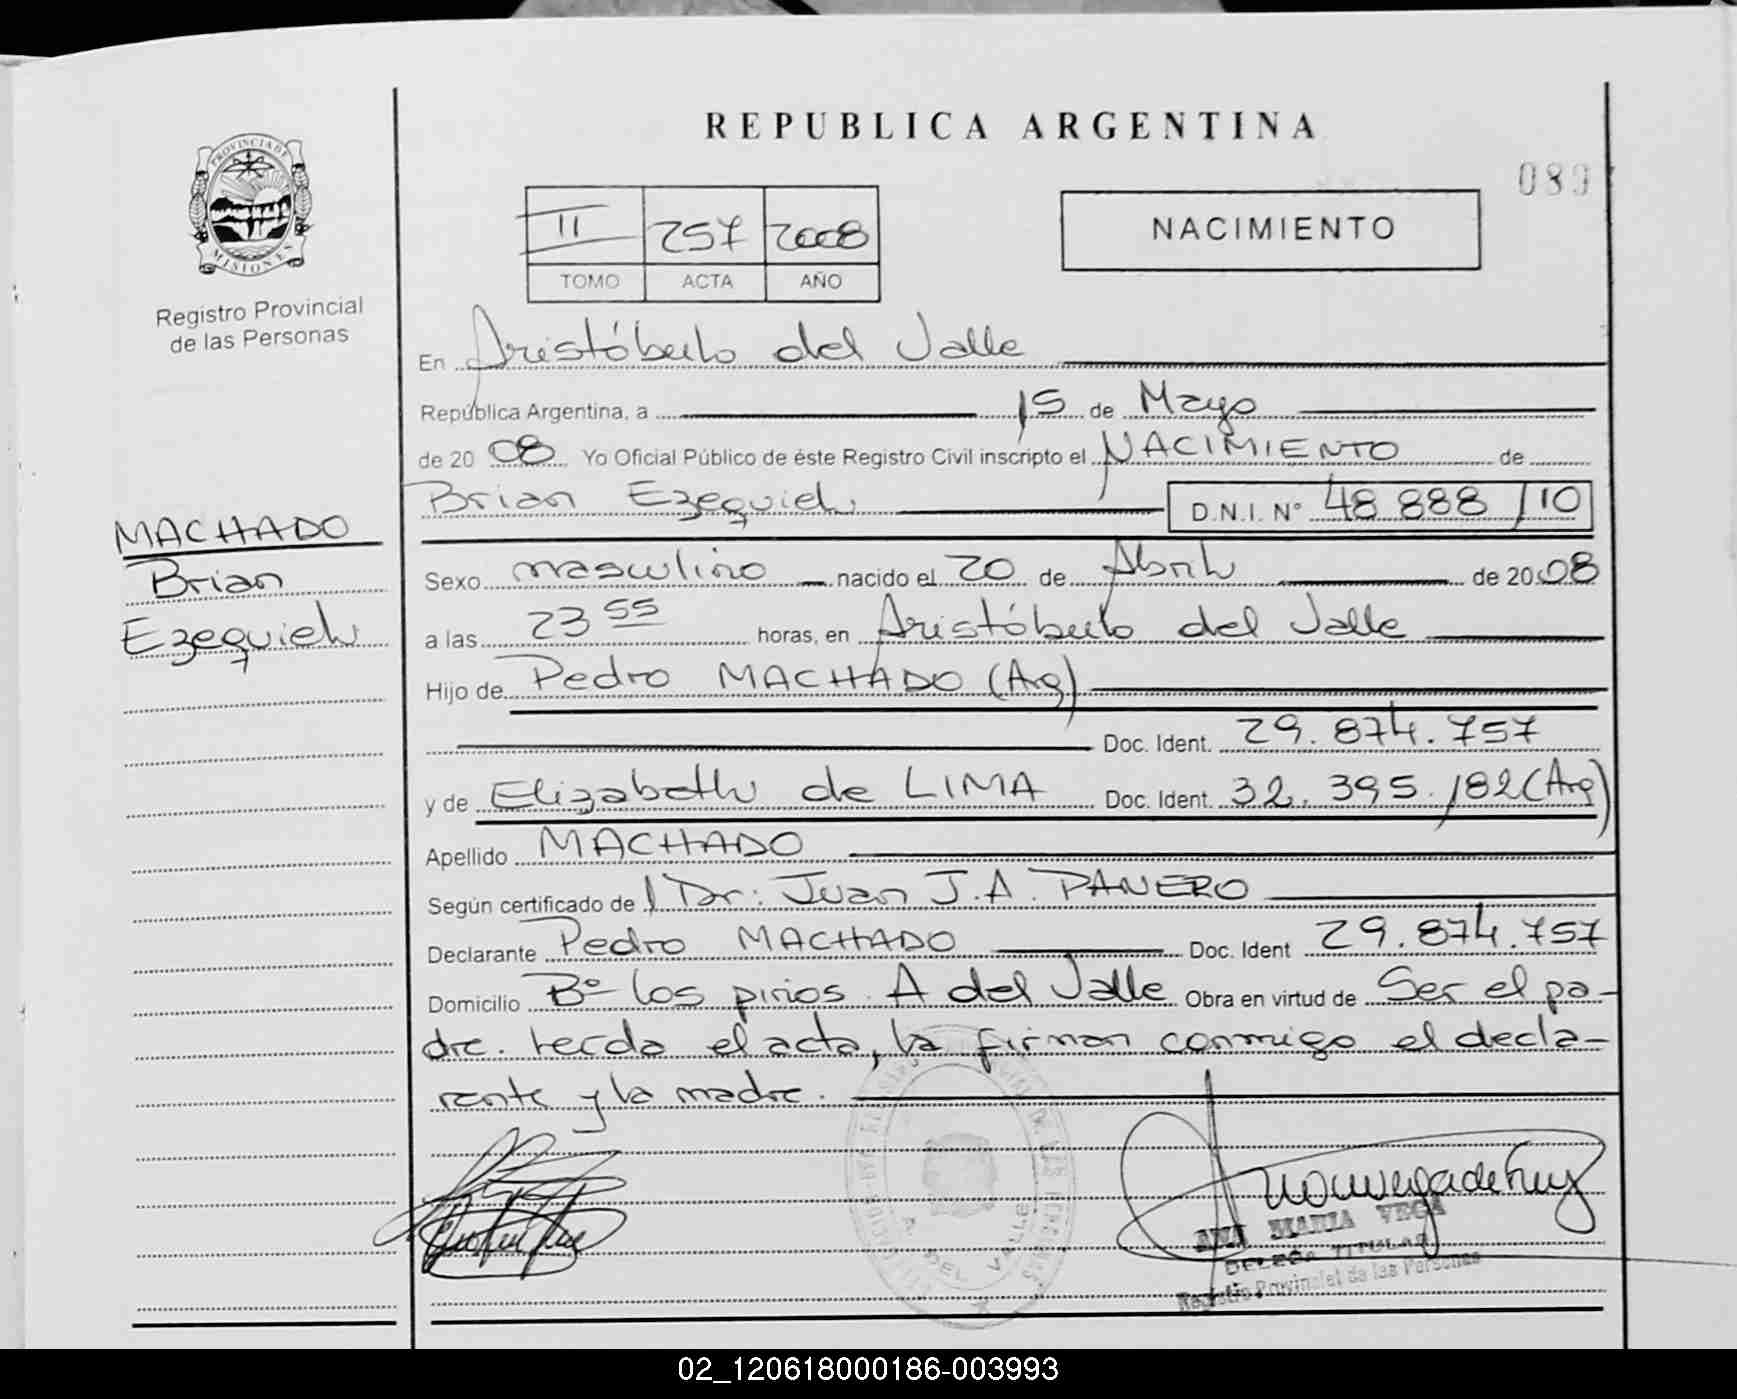 REPUBLICA ARGENTINA
PROVINCIA DE
MISIONES
Registro Provincial
de las Personas
II 257 2008
TOMO ACTA AÑO
NACIMIENTO
En Aristóbulo del Valle
República Argentina, a 15 de Mayo
de 20 08 Yo Oficial Público de éste Registro Civil inscripto el NACIMIENTO de
Brian Ezequiel D.N.I. N° 48 888 110
MACHADO
Brian
Ezequiel
Sexo masculino nacido el 20 de Abril de 20 08
a las 23 55 horas, en Aristóbulo del Valle
Hijo de Pedro MACHADO (Arg)
Doc. Ident. 29.874.757
y de Elizabeth de LIMA Doc. Ident. 32.395.182 (Arg)
Apellido MACHADO
Según certificado de Dr: Juan J.A. PANERO
Declarante Pedro MACHADO Doc. Ident 29.874.757
Domicilio B° los pinos. A del Valle Obra en virtud de Ser el pa-
dre. Leida el acta, la firman conmigo el decla-
rante y la madre.
A. DEL VALLE
ANA MARIA VEGA
DELEGA TITULAR
Registro Provincial de las Personas
02_120618000186-003993